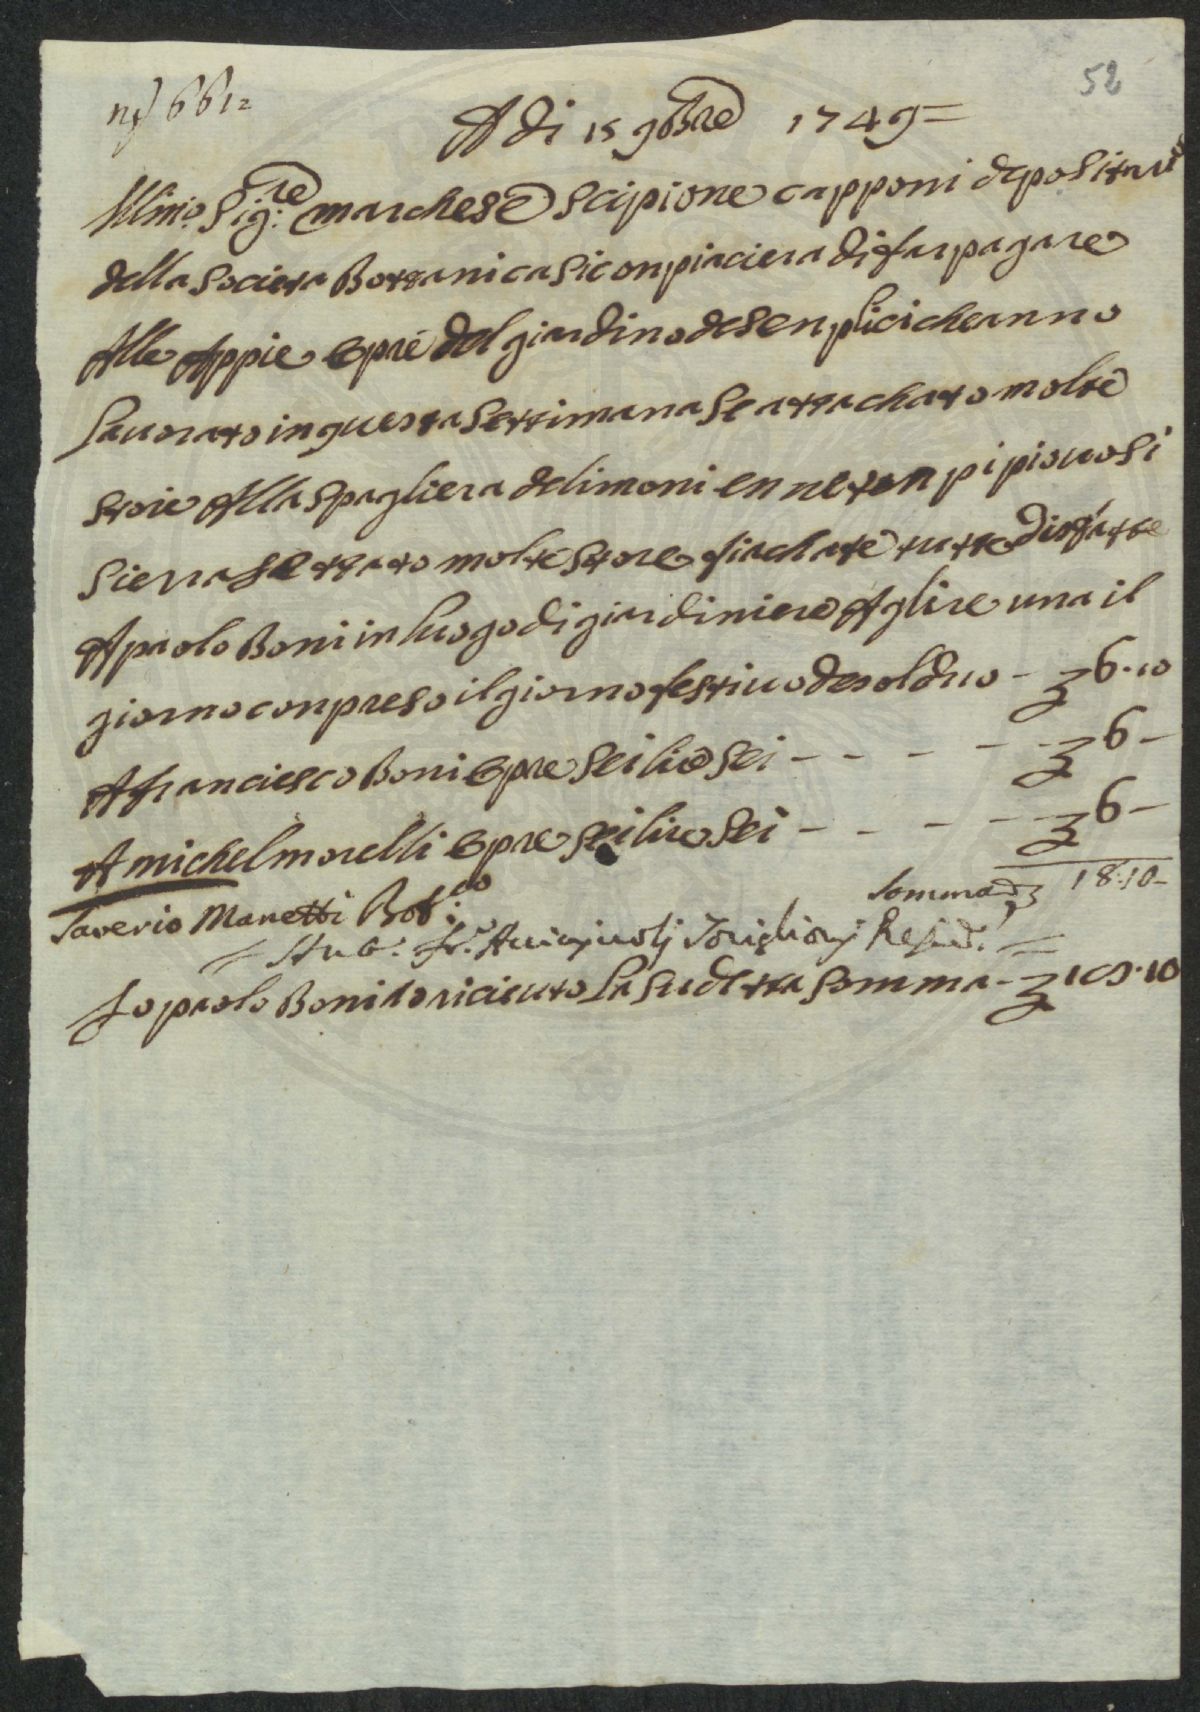 58
A di 15 9bre 1749=
Illmo. Sig:re marchese Scipione capponi depositare
della Societa Bottanica Si conpiaciera di far pagare
Alle Appie Opre del giardino de Senplici che anno
Lauorato in questa Settimana Se attachato molte
Store Alla Spagliera de limoni en ne tenpi piouosi
Si er ra molte Store fiachate tutte disfatte
A paolo Boni in luogo di giardiniere A lire una il
giorno conpreso il giorno festiuo de - 6.10
A franciesco Boni Opre Sei lire Sei - - - - - 6 -
A michel morelli Opre Sei lire Sei - - - - - 6 -
Somma 18.10-
Saverio Manetti Bot:co
= Ant.
Io paolo Boni o riceuto La Sudetta Somma - 18.10